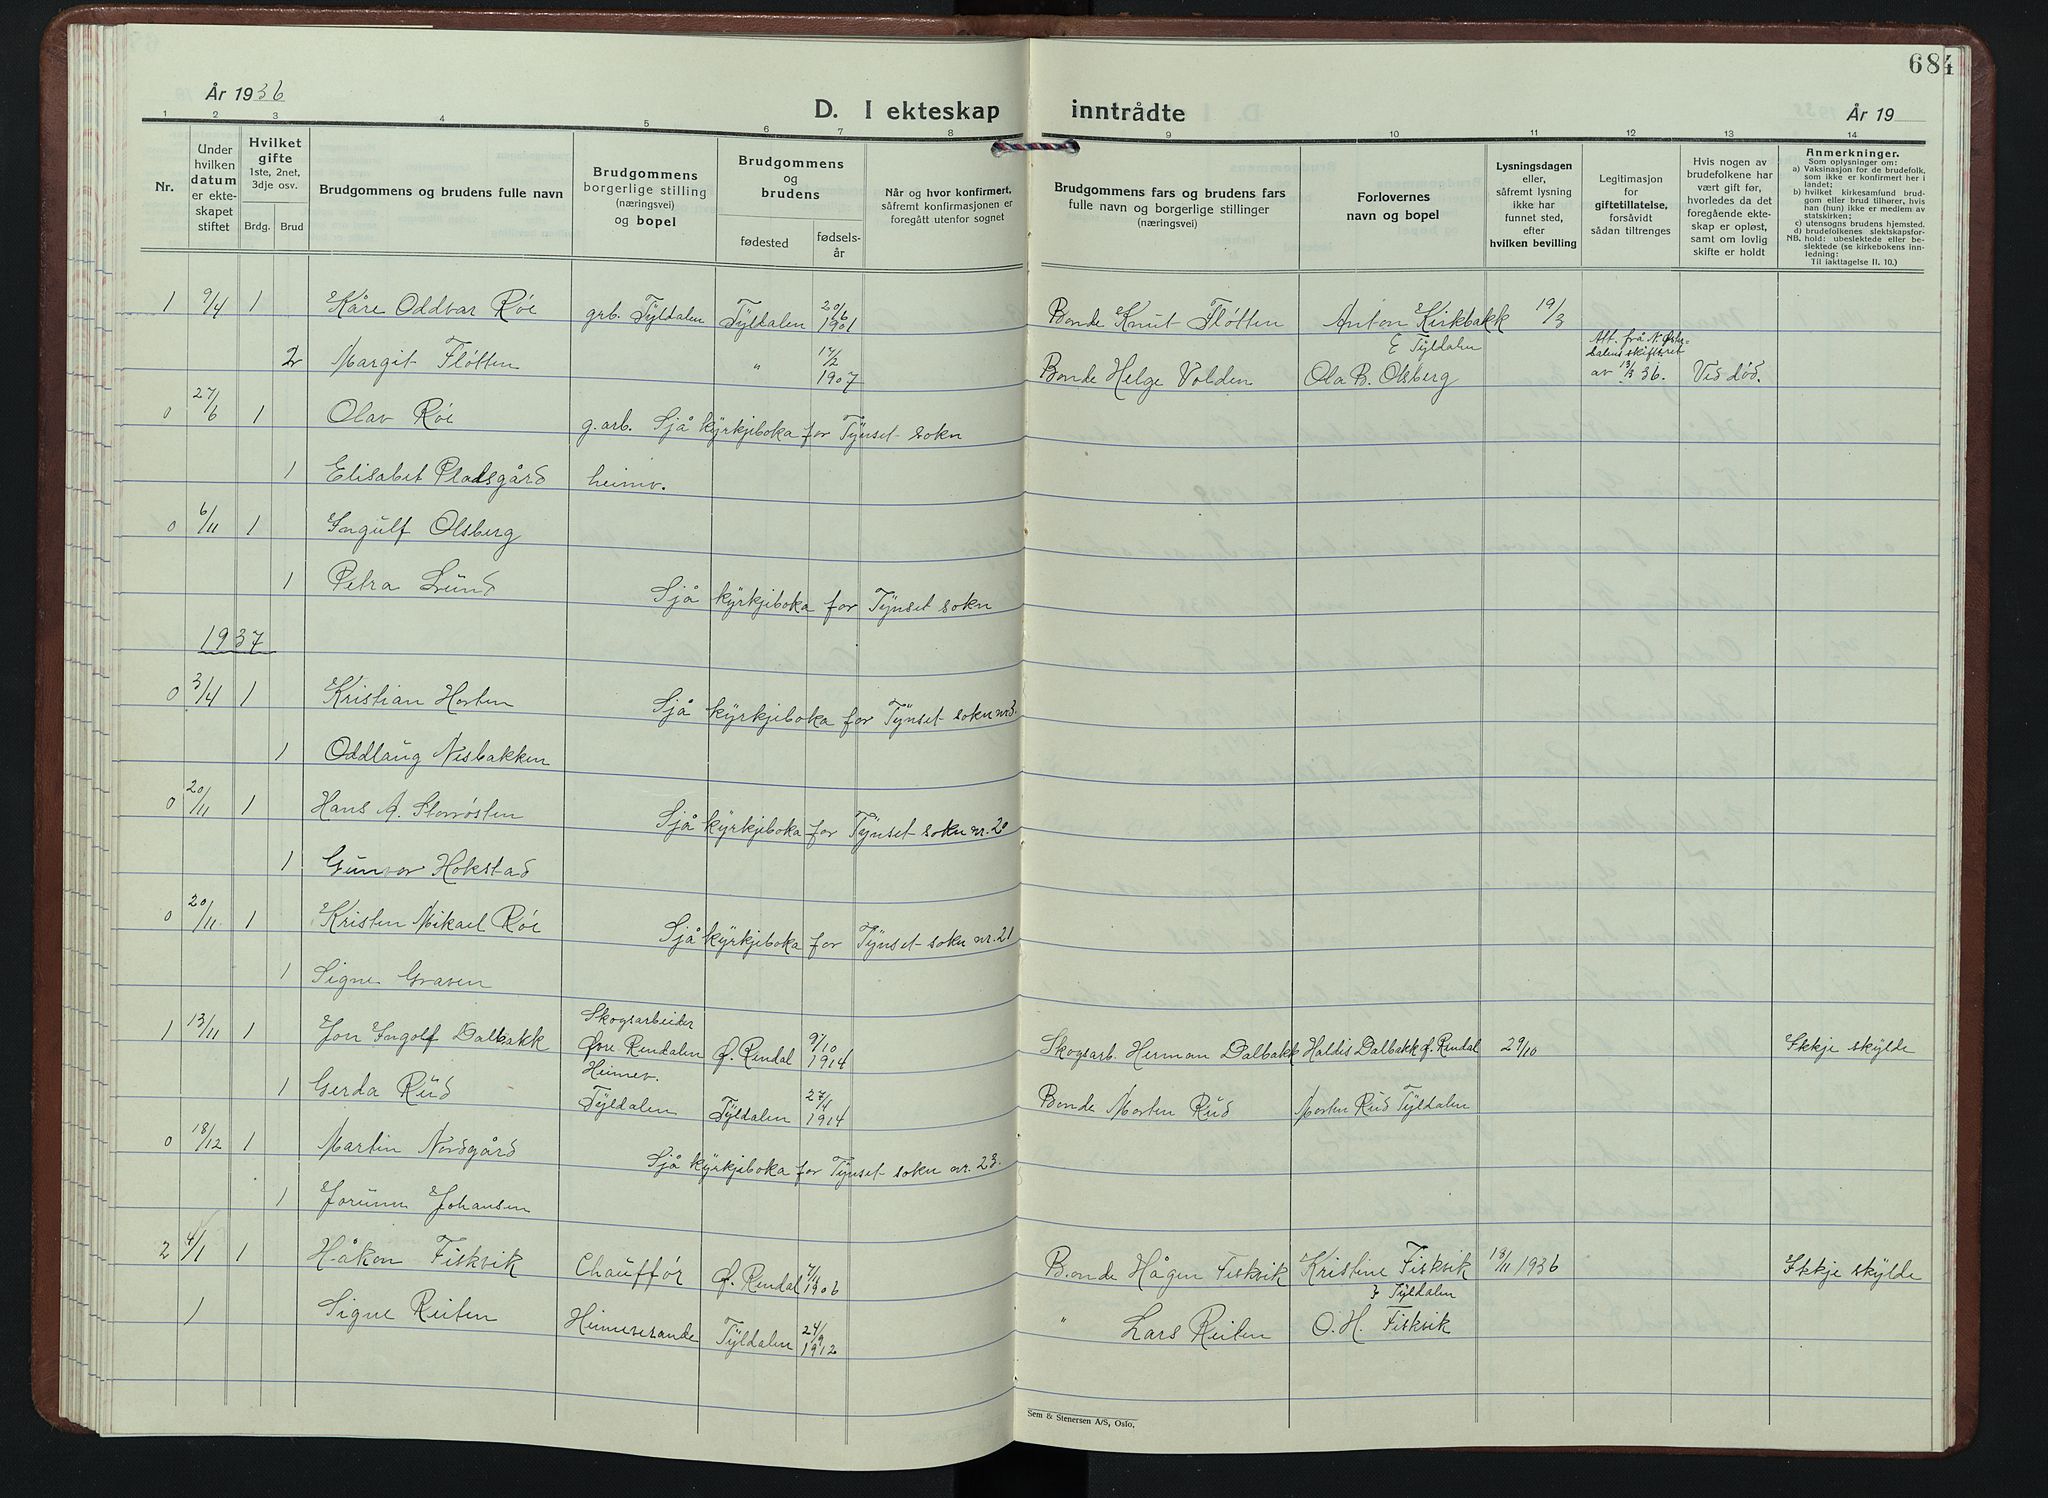 684
År 1936
D. I ekteskap inntrådte
År 19
1 2 3 4 5 6 7 8 9 10 11 12 13 14
Nr.
Under hvilken datum er ekteskapet stiftet
Hvilket gifte 1ste, 2net, 3dje osv.
Brdg. Brud
Brudgommens og brudens fulle navn
Brudgommens borgerlige stilling (næringsvei) og bopel
Brudgommens og brudens
fødested
fødselsår
Når og hvor konfirmert, såfremt konfirmasjonen er foregått utenfor sognet
Brudgommens fars og brudens fars fulle navn og borgerlige stillinger (næringsvei)
Forlovernes navn og bopel
Lysningsdagen eller, såfremt lysning ikke har funnet sted, efter hvilken bevilling
Legitimasjon for giftetillatelse, forsåvidt sådan tiltrenges
Hvis nogen av brudefolkene har vært gift før, hvorledes da det foregående ekteskap er opløst, samt om lovlig skifte er holdt
Anmerkninger.
Som oplysninger om:
a) Vaksinasjon for de brudefolk, som ikke er konfirmert her i landet;
b) hvilket kirkesamfund brudgom eller brud tilhører, hvis han (hun) ikke er medlem av statskirken;
c) utensogns brudens hjemsted.
d) brudefolkenes slektskapsforhold: ubeslektede eller beslektede (se kirkebokens innledning:
NB. Til iakttagelse II. 10.)
1 9/4 1 Kåre Oddvar Røe grb. Tyldalen Tyldalen 20/6 1901 Bonde Knut Fløtten Anton Kirkbakk 19/3
E Tyldalen
2 Margit Fløtten " 17/2 1907 Bonde Helge Volden Ola B. Olsberg Att. frå N. Østerdalens skifteret av 13/3 36. Ved død.
0 27/6 1 Olav Røe g.arb. Sjå kyrkjeboka for Tynset sokn
1 Elisabet Pladsgård heimv.
0 6/11 1 Ingulf Olsberg
1 Petra Lund Sjå kyrkjeboka for Tynset sokn
1937
0 3/4 1 Kristian Horten Sjå kyrkjeboka for Tynset sokn nr 3.
1 Oddlaug Nesbakken
0 20/11 1 Hans A. Storrøsten Sjå kyrkjeboka for Tynset sokn nr. 20
1 Gunvor Hokstad
0 20/11 1 Kristen Mikael Røe Sjå kyrkjeboka for Tynset sokn nr. 21
1 Signe Graven
1 13/11 1 Jon Ingolf Dalbakk Skogsarbeider Øvre Rendalen Ø. Rendal 9/10 1914 Skogsarb. Herman Dalbakk Haldis Dalbakk Ø. Rendal 29/10 Ikkje skylde
1 Gerda Rud Heimev. Tyldalen Tyldalen 27/4 1914 Bonde Morten Rud Morten Rud Tyldalen
0 18/12 1 Martin Nordgård Sjå kyrkjeboka for Tynset sokn nr. 23.
1 Jorunn Johansen
2 4/1 1 Håkon Fiskvik Chauffør Ø. Rendal 7/4 1906 Bonde Hågen Fiskvik Kristine Fiskvik 18/11 1936 Ikkje skylde
Tyldalen
1 Signe Reiten Heimeverande Tyldalen 24/9 1912 " Lars Reiten O. H. Fiskvik
Sem & Stenersen A/S, Oslo.